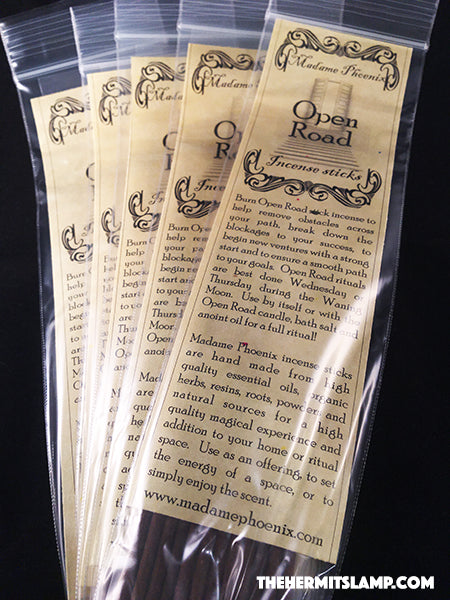 Madame Phoenix
Open
Road
Incense sticks
Burn Open Road stick incense to
help remove obstacles across
your path, break down the
blockages to your success, to
begin new ventures with a strong
start and to ensure a smooth path
to your goals. Open Road rituals
are best done Wednesday or
Thursday during the Waning
Moon. Use by itself or with the
Open Road candle, bath salt and
anoint oil for a full ritual!
Madame Phoenix incense sticks
are hand made from high
quality essential oils, organic
herbs, resins, roots, powders and
natural sources for a high
quality magical experience and
addition to your home or ritual
space. Use as an offering, to set
the energy of a space, or to
simply enjoy the scent.
www.madamephoenix.com
THEHERMITSLAMP.COM